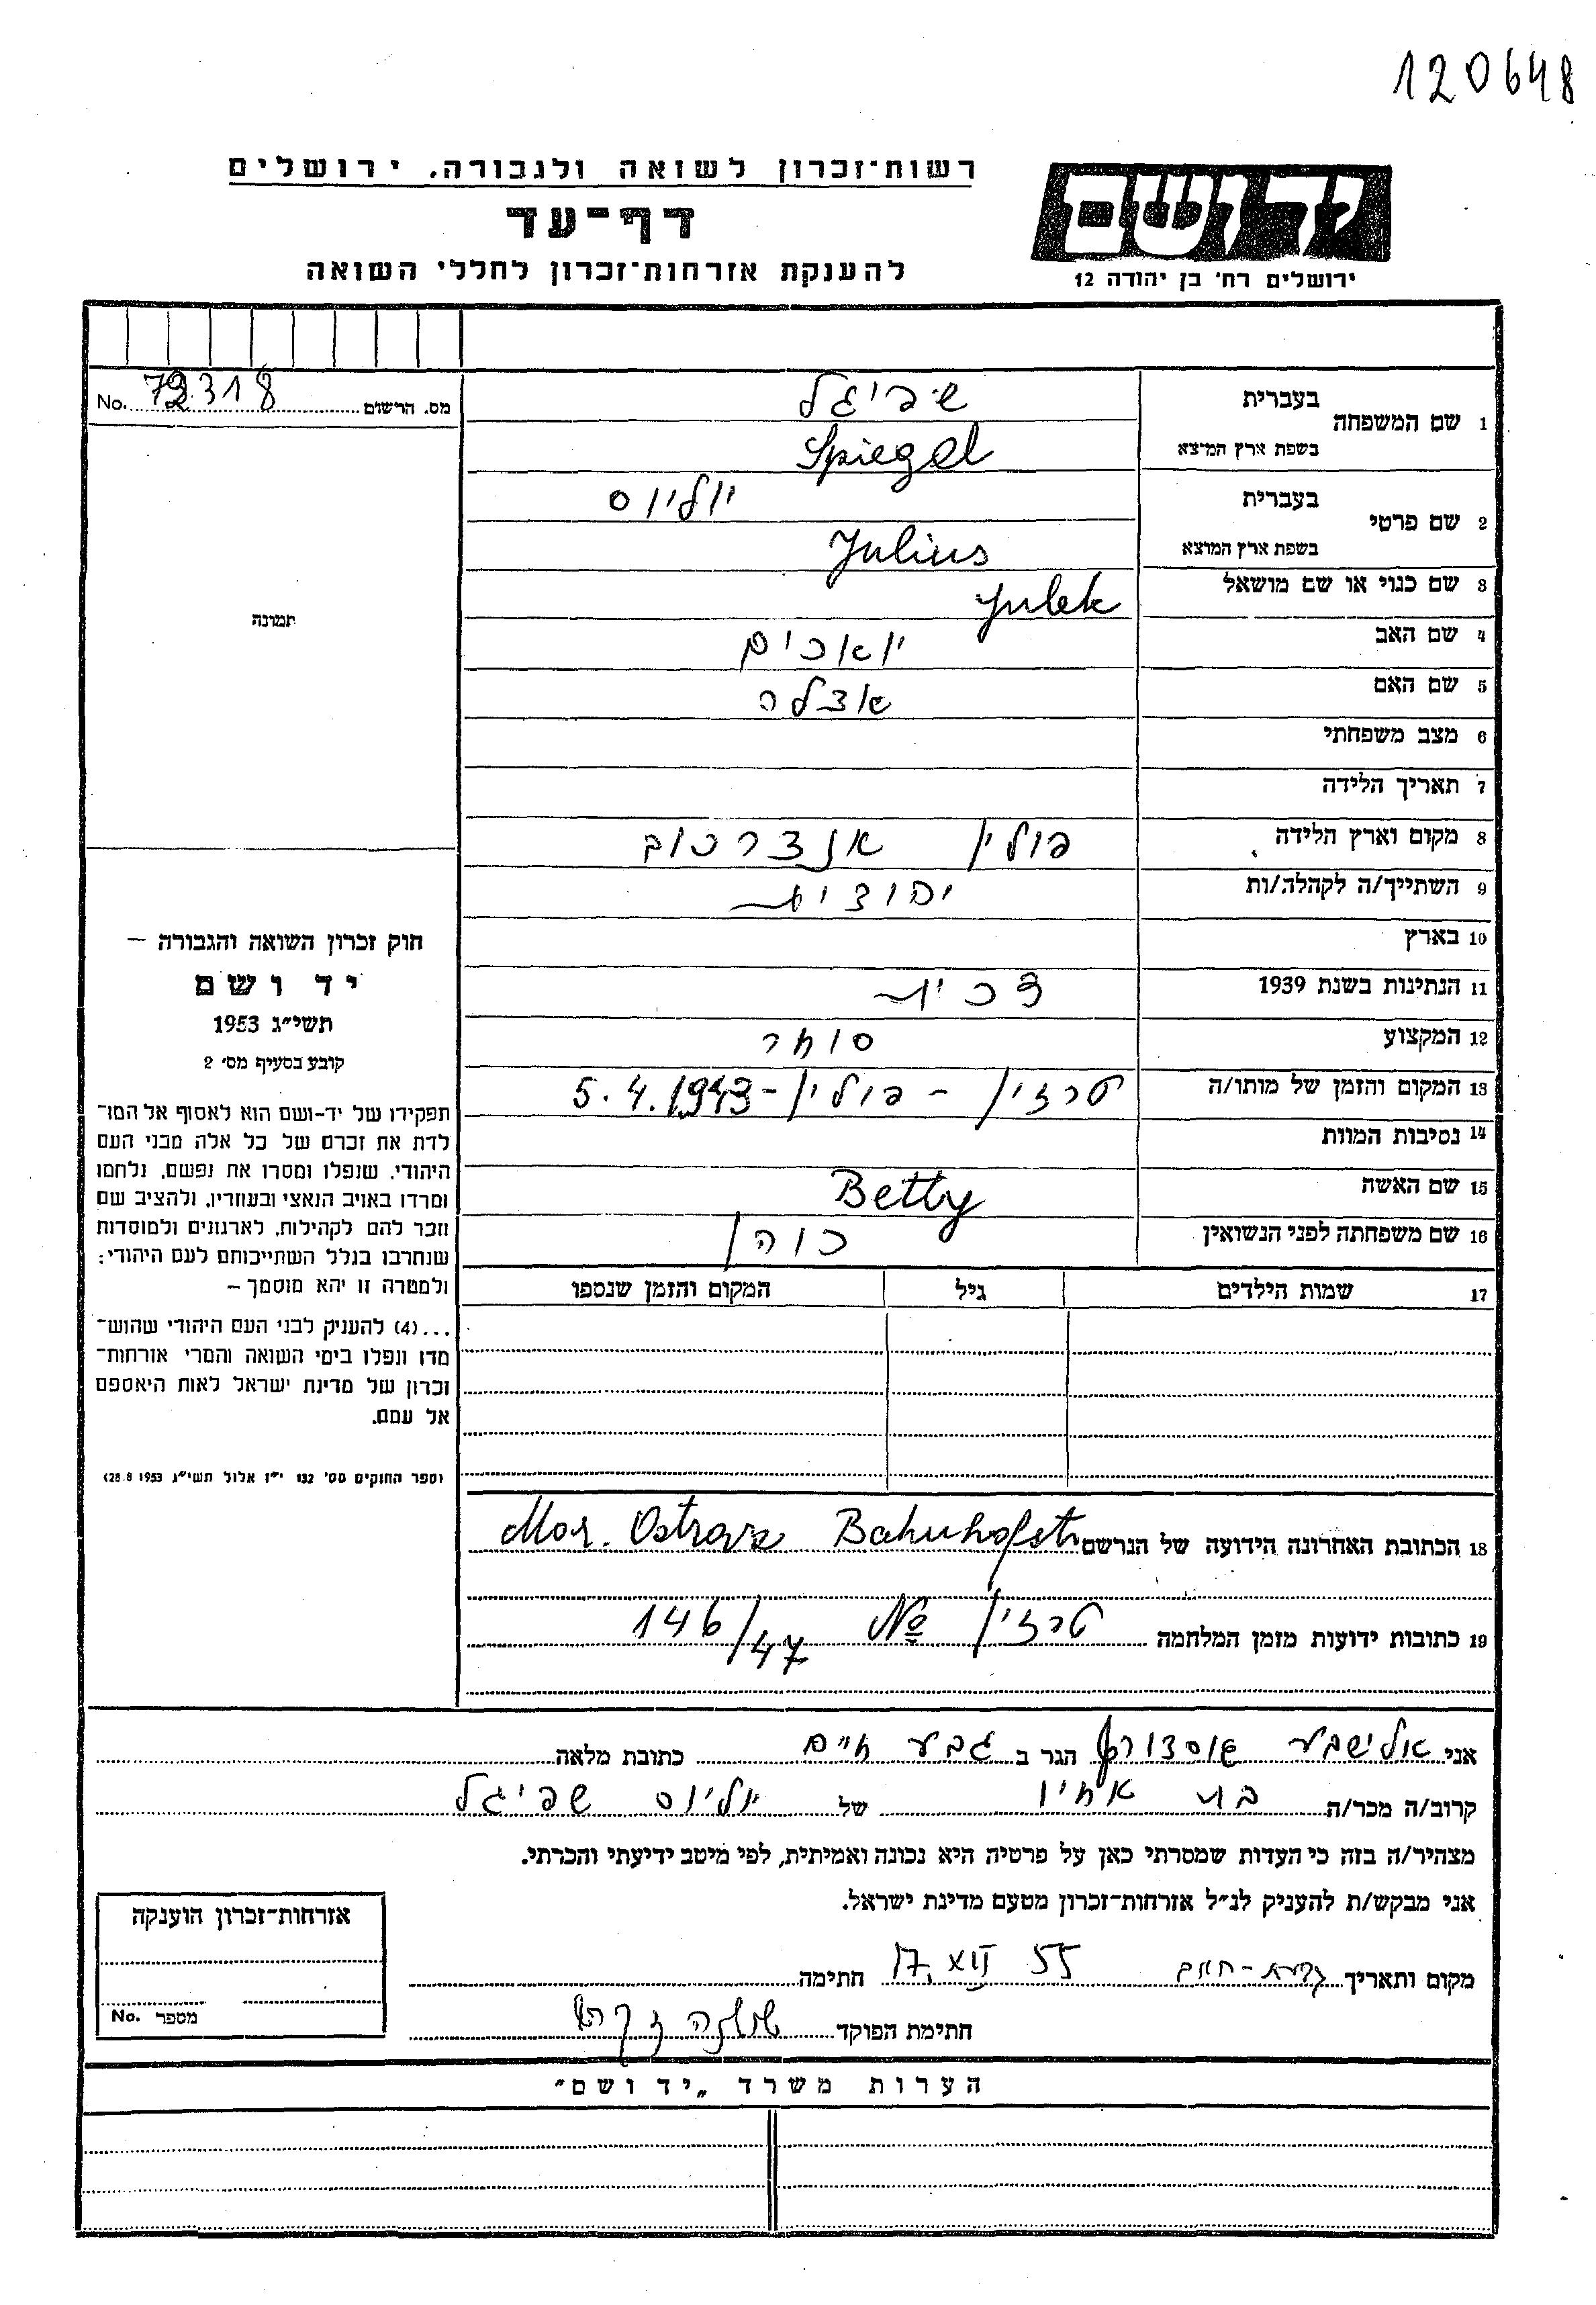 120648
רשות־זכרון לשואה ולגבורה. ירושלים
דף־עד
להענקת אזרחות־זכרון לחללי השואה
יד ושם
ירושלים רח' בן יהודה 12
No. 72318 מס. הרשום
תמונה
1 שם המשפחה בעברית שפיגל
בשפת ארץ המוצא Spiegel
2 שם פרטי בעברית יוליוס
בשפת ארץ המוצא Julius
3 שם כנוי או שם מושאל Julek
4 שם האב יואכים
5 שם האם אדלה
6 מצב משפחתי
7 תאריך הלידה
8 מקום וארץ הלידה פולין
9 השתייך/ה לקהלה/ות יהודית
10 בארץ
11 הנתינות בשנת 1939 צכית
12 המקצוע סוחר
13 המקום והזמן של מותו/ה טרזין - פולין - 5.4.1943
14 נסיבות המוות
15 שם האשה Betty
16 שם משפחתה לפני הנשואין כוהן
17 שמות הילדים גיל המקום והזמן שנספו
18 הכתובת האחרונה הידועה של הנרשם Mor. Ostrava Bahnhofstr
19 כתובות ידועות מזמן המלחמה טרזין № 146/47
חוק זכרון השואה והגבורה –
יד ושם
תשי"ג 1953
קובע בסעיף מס' 2
תפקידו של יד-ושם הוא לאסוף אל המו־
לדת את זכרם של כל אלה מבני העם
היהודי, שנפלו ומסרו את נפשם, נלחמו
ומרדו באויב הנאצי ובעוזריו, ולהציב שם
וזכר להם לקהילות, לארגונים ולמוסדות
שנחרבו בגלל השתייכותם לעם היהודי;
ולמטרה זו יהא מוסמך –
...(4) להעניק לבני העם היהודי שהוש־
מדו ונפלו בימי השואה והמרי אזרחות־
זכרון של מדינת ישראל לאות היאספם
אל עמם.
(ספר החוקים מס' 132 י"ז אלול תשי"ג 28.8.1953)
אני אלישבע הגר ב גבע חיים כתובת מלאה
קרוב/ה מכר/ה בת אחיו של יוליוס שפיגל
מצהיר/ה בזה כי העדות שמסרתי כאן על פרטיה היא נכונה ואמיתית, לפי מיטב ידיעתי והכרתי.
אני מבקש/ת להעניק לנ"ל אזרחות־זכרון מטעם מדינת ישראל.
מקום ותאריך 17. XII 55 חתימה
חתימת הפוקד
אזרחות־זכרון הוענקה
No. מספר
הערות משרד „יד ושם"